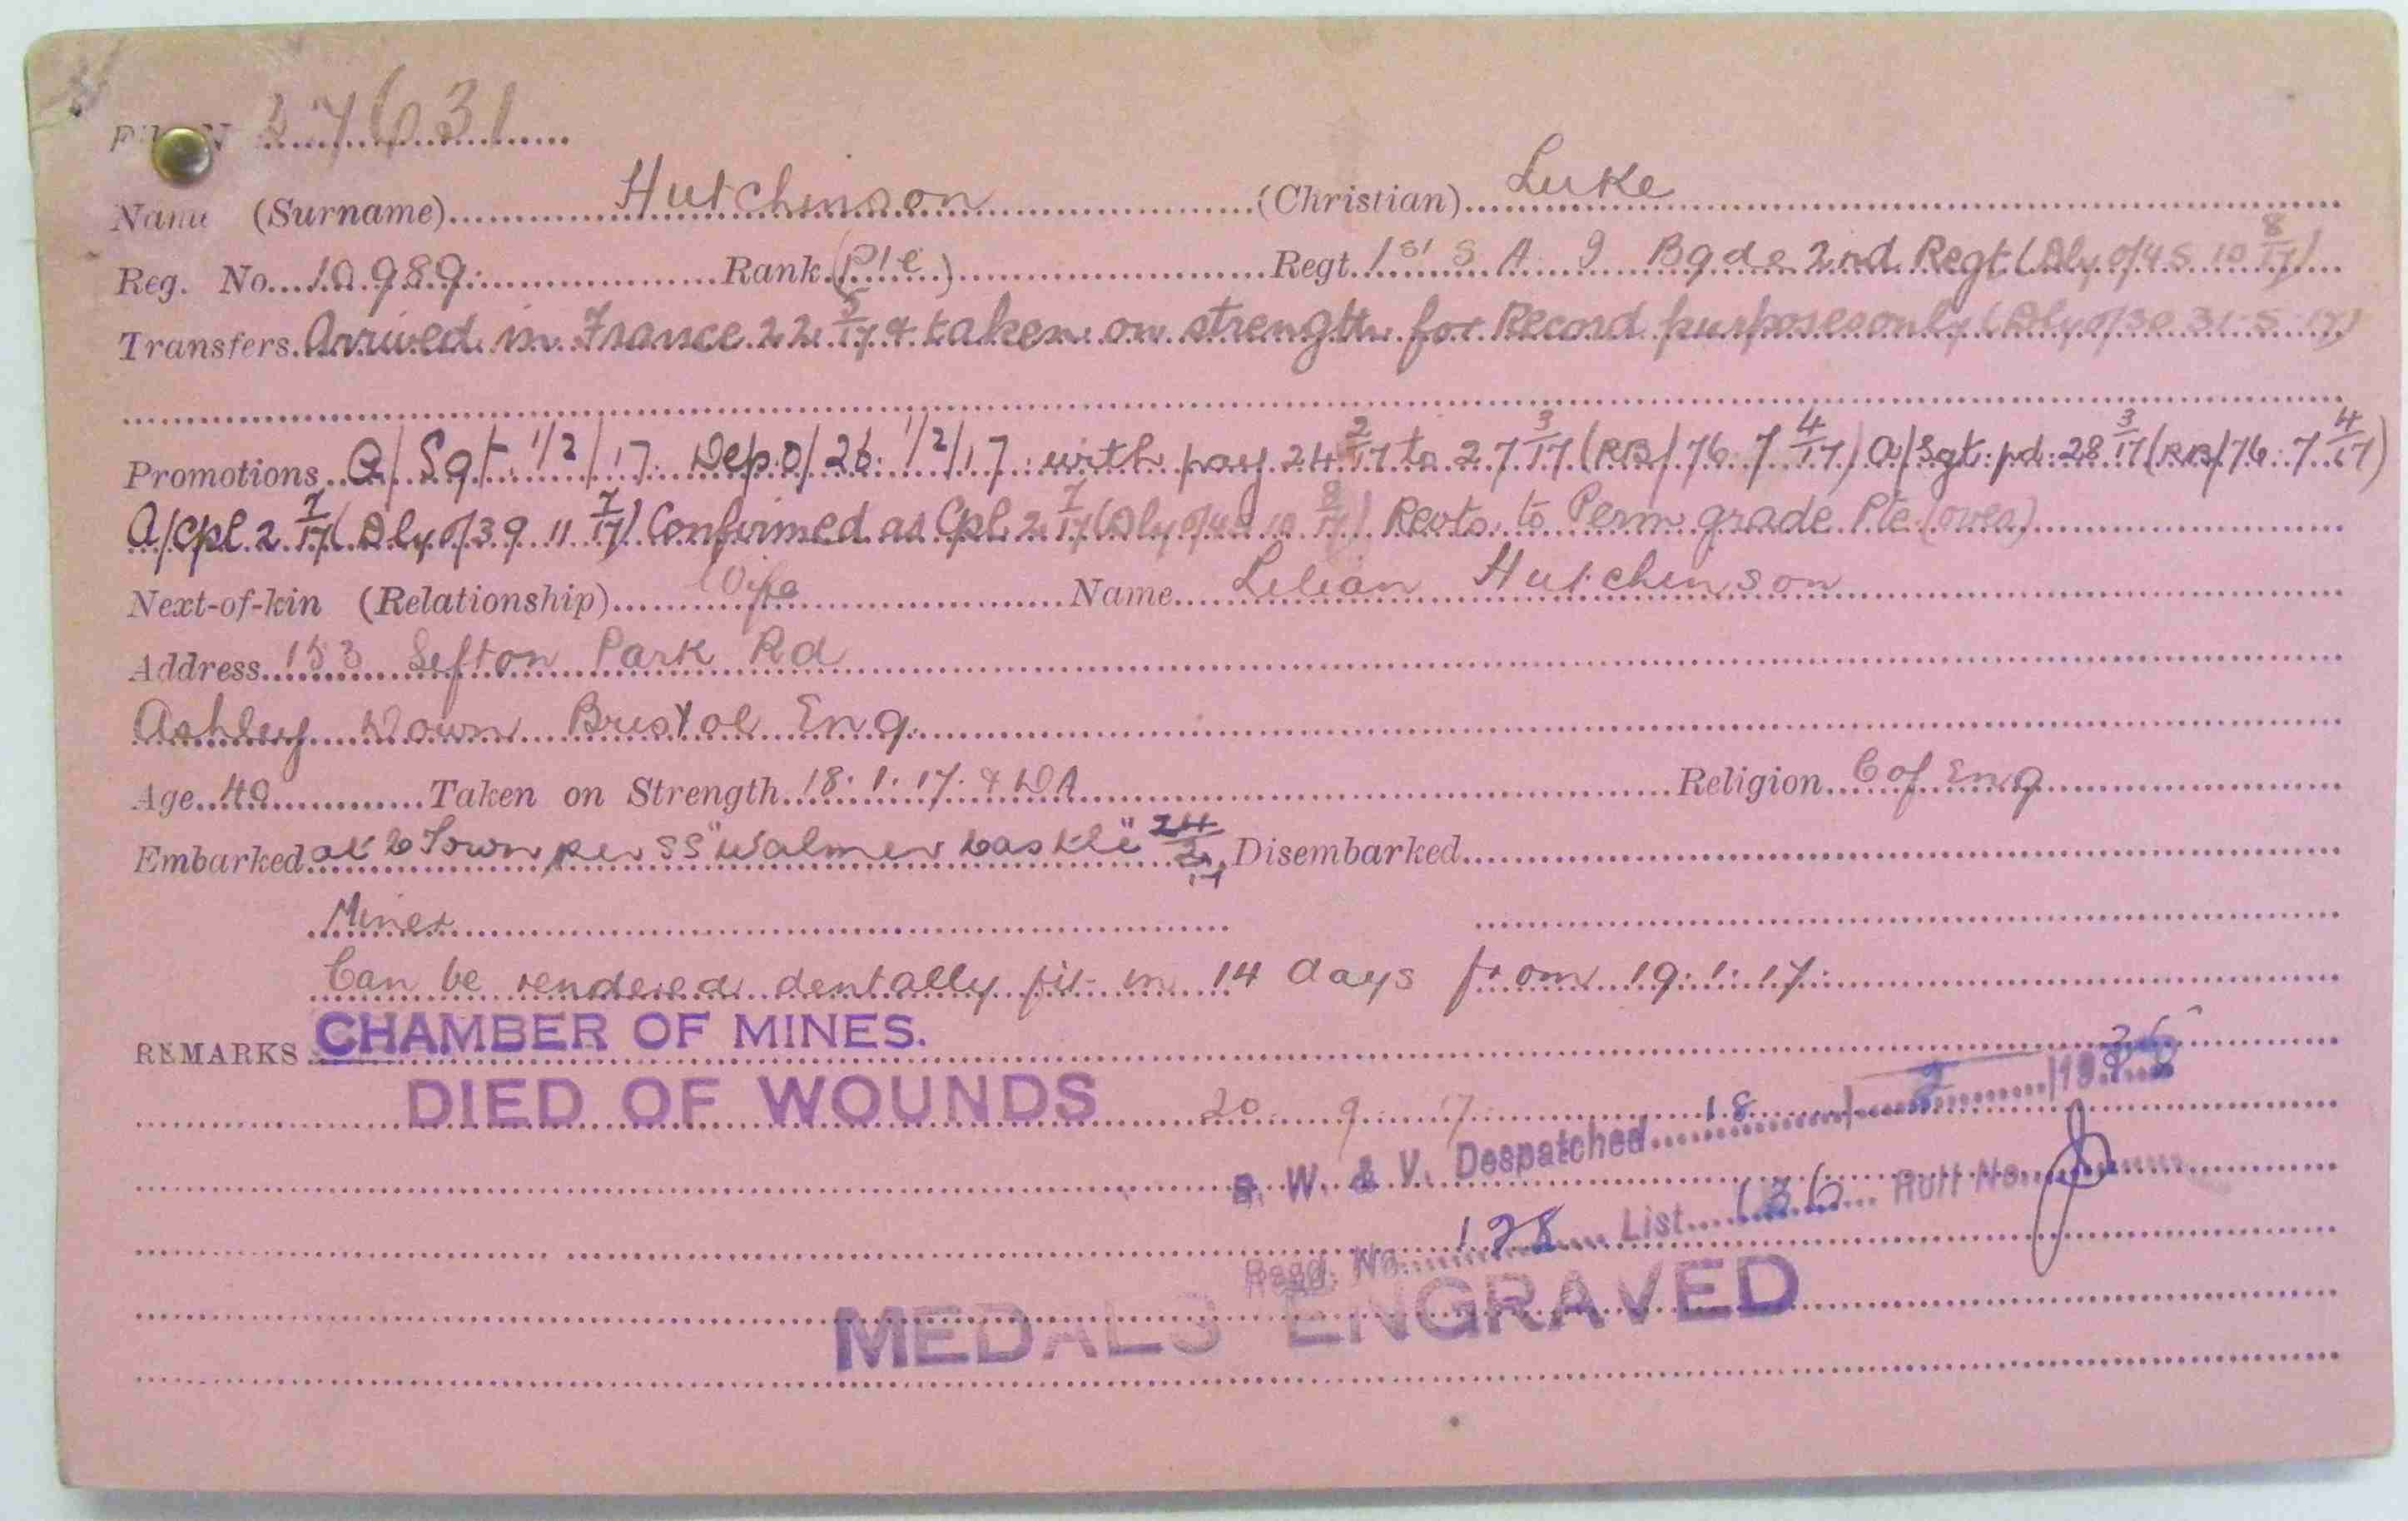 File No 27631
Name (Surname) Hutchinson (Christian) Luke
Reg. No. 10989. Rank (Pte) Regt. 1st S A I Bgde 2nd Regt (Dly o/45 10 8/17)
Transfers. Arrived in France 22 5/17 & taken on strength for Record purposes only (Dly o/30 31-5-17)
Promotions. A/Sgt. 1/2/17. Dep. o/26. 1/2/17. with pay 24 2/17 to 27 3/17 (RB/76. 7 4/17) A/Sgt. pd. 28 3/17 (RB/76. 7 4/17)
A/Cpl 2 7/17 (Dly o/39 11 7/17) Confirmed as Cpl 2 7/17 (Dly o/45 10 8/17) Revts. to Perm grade Pte (over)
Next-of-kin (Relationship) Wife Name Lilian Hutchinson
Address. 153 Sefton Park Rd
Ashley Down Bristol Eng.
Age. 40 Taken on Strength. 18. 1. 17. Religion. C of Eng
Embarked at C Town per SS "Walmer Castle" 24/2/17 Disembarked
Miner
Can be rendered dentally fit in 14 days from 19. 1. 17.
REMARKS CHAMBER OF MINES.
DIED OF WOUNDS 20 9 17
B. W. & V. Despatched 18 / 2 /19
Regd. No. 128 List 136 Rutt No.
MEDALS ENGRAVED